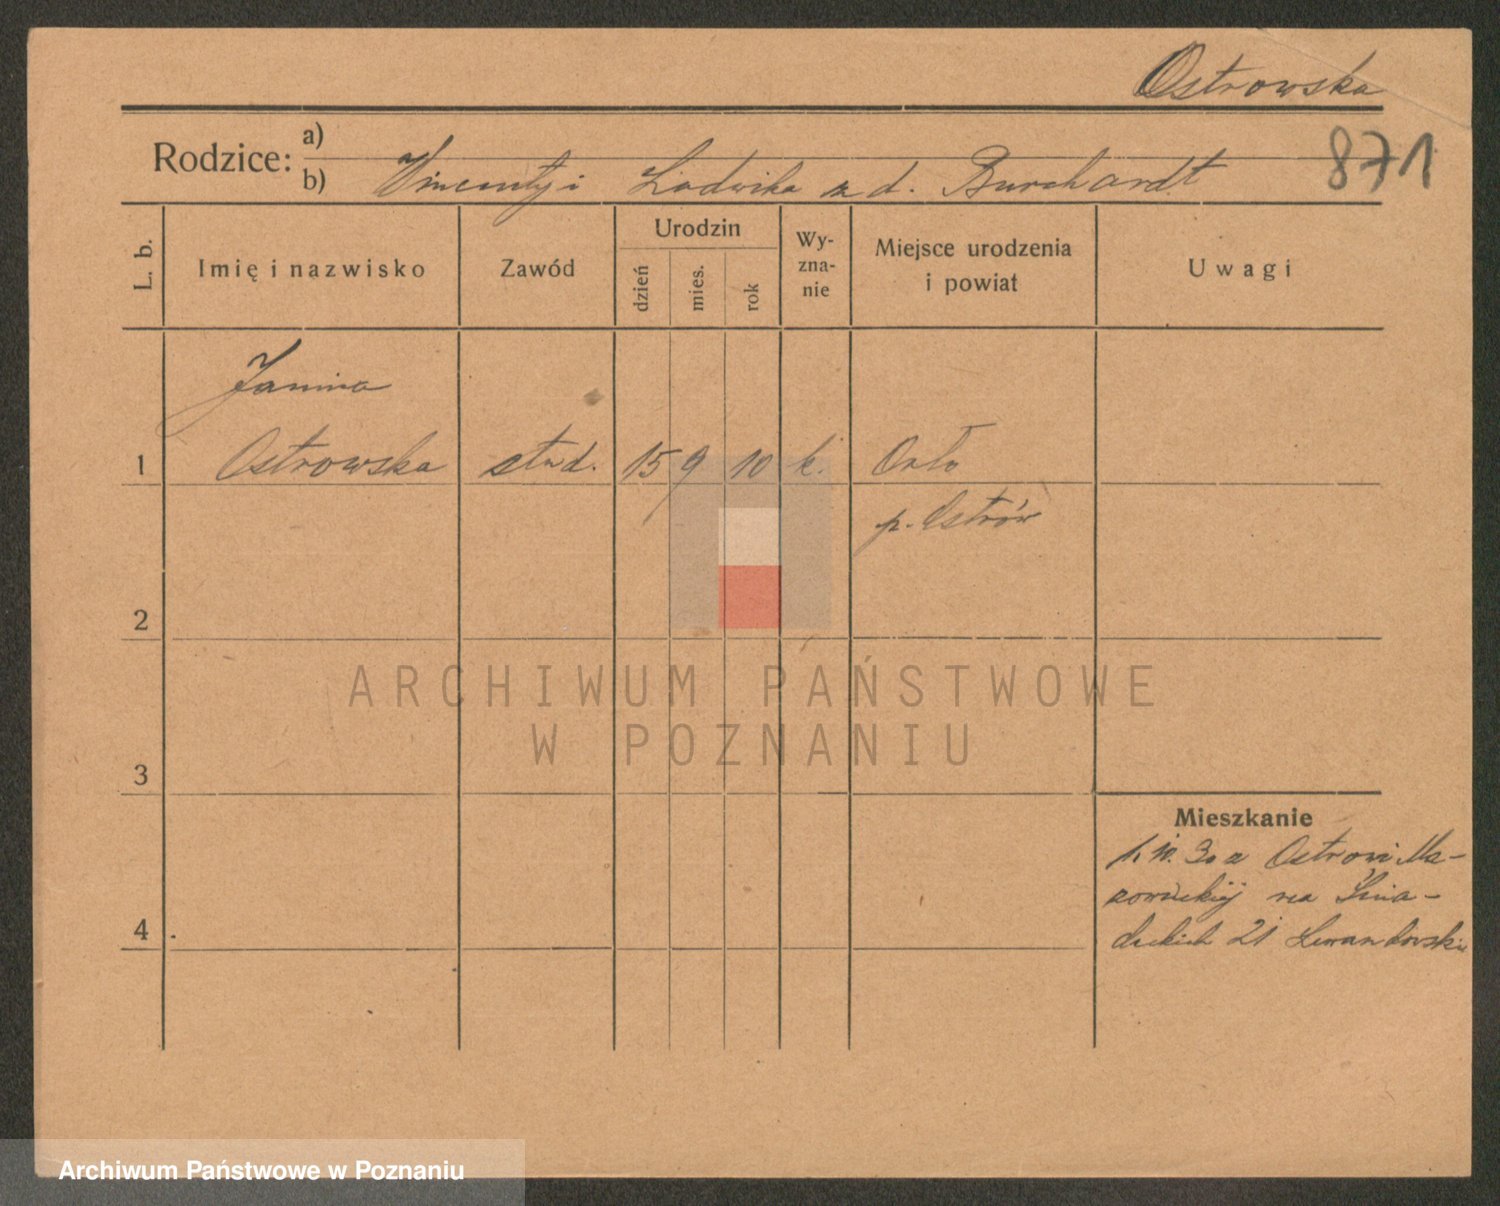 Ostrowska
871
Rodzice: a)
b) Wincenty i Ludwika z d. Burchardt
L. b.
Imię i nazwisko
Zawód
Urodzin
dzień
mies.
rok
Wy-
zna-
nie
Miejsce urodzenia
i powiat
Uwagi
Janina
1 Ostrowska stud. 15 9 10 k. Orło
p. Ostrów
2
3
4
ARCHIWUM PAŃSTWOWE
W POZNANIU
Mieszkanie
10. 30 z Ostrowi Ma-
zowieckiej na Śnia-
deckich 21 Lewandowski
Archiwum Państwowe w Poznaniu